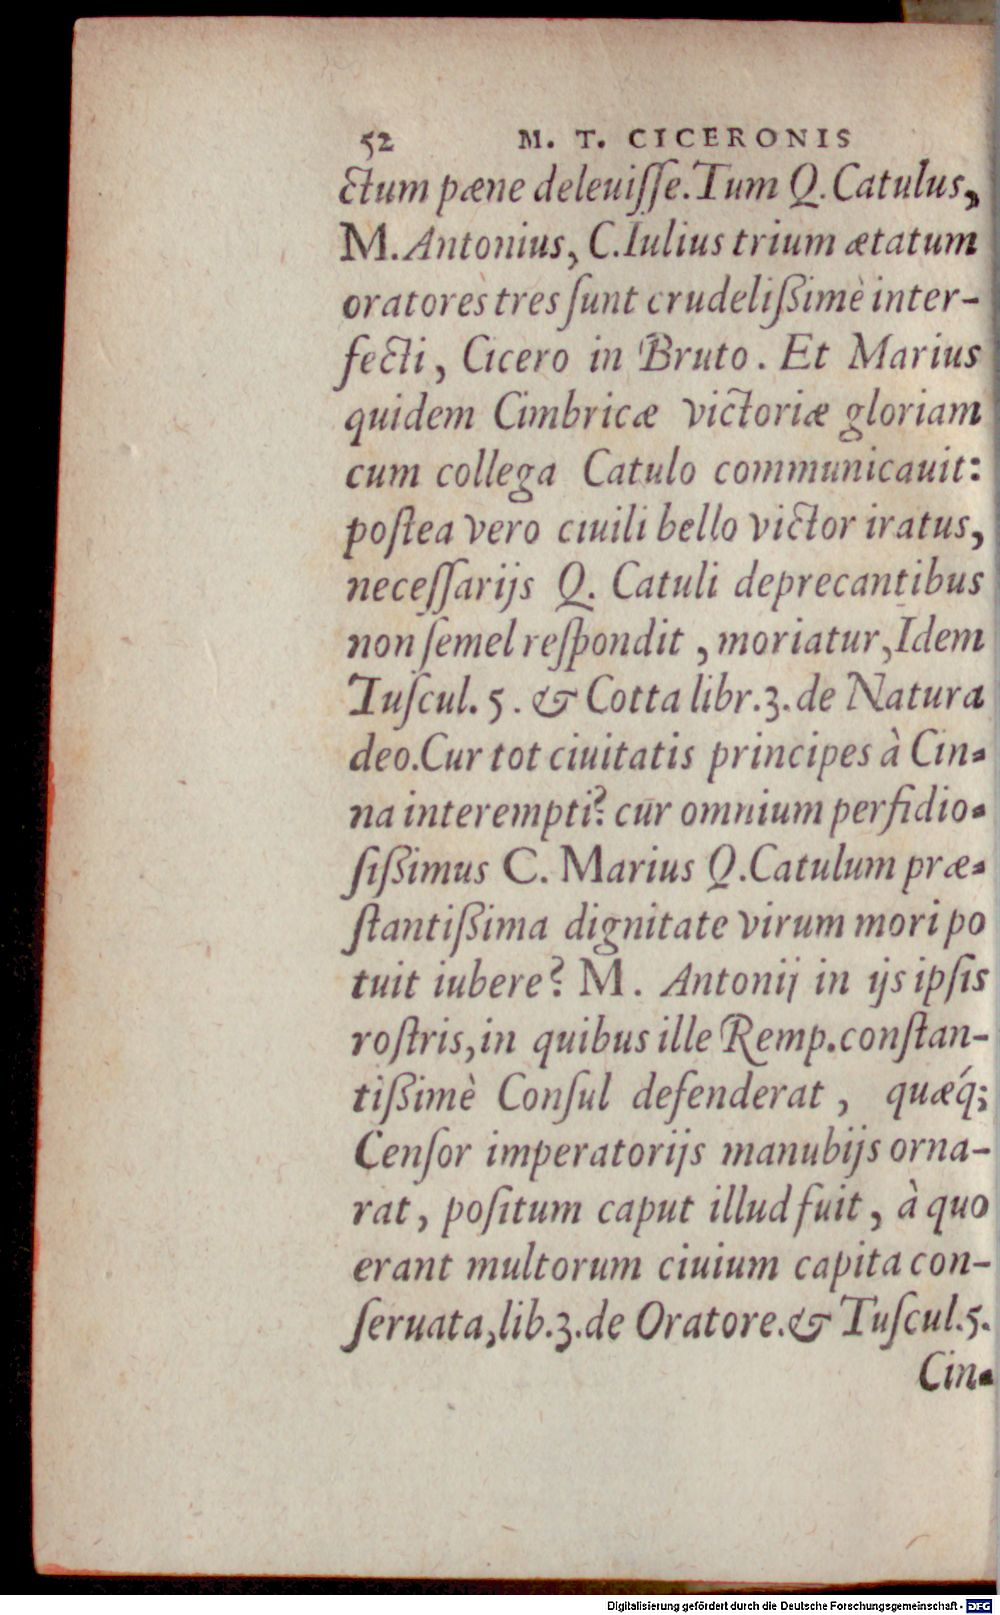 52 M. T. CICERONIS
ctum pæne deleuiſſe. Tum Q. Catulus,
M. Antonius, C. Iulius trium ætatum
oratores tres ſunt crudelißimè inter-
fecti, Cicero in Bruto. Et Marius
quidem Cimbricæ victoriæ gloriam
cum collega Catulo communicauit:
poſtea vero ciuili bello victor iratus,
neceſſarijs Q. Catuli deprecantibus
non ſemel reſpondit, moriatur, Idem
Tuſcul. 5. & Cotta libr. 3. de Natura
deo. Cur tot ciuitatis principes à Cin-
na interempti? cur omnium perfidio-
ſißimus C. Marius Q. Catulum præ-
ſtantißima dignitate virum mori po
tuit iubere? M. Antonij in ijs ipſis
roſtris, in quibus ille Remp. conſtan-
tißimè Conſul defenderat, quæq́;
Cenſor imperatorijs manubijs orna-
rat, poſitum caput illud fuit, à quo
erant multorum ciuium capita con-
ſeruata, lib. 3. de Oratore. & Tuſcul. 5.
Cin-
Digitalisierung gefördert durch die Deutsche Forschungsgemeinschaft - DFG